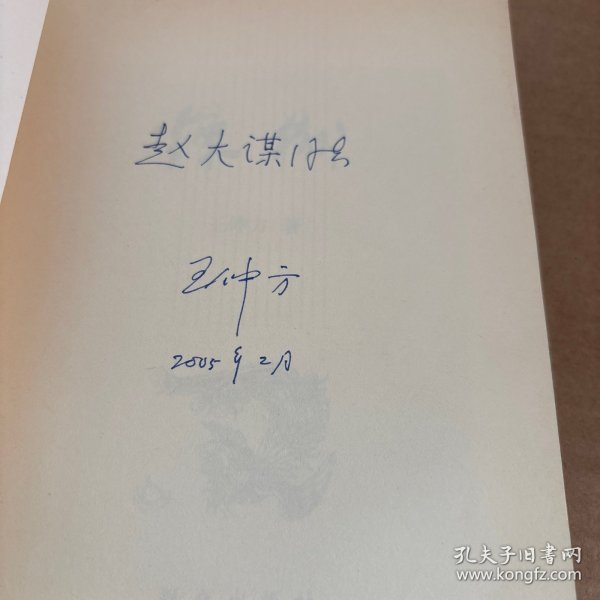 赵大谋同志
王仲方
2005年2月
孔夫子旧书网
www.kongfz.com